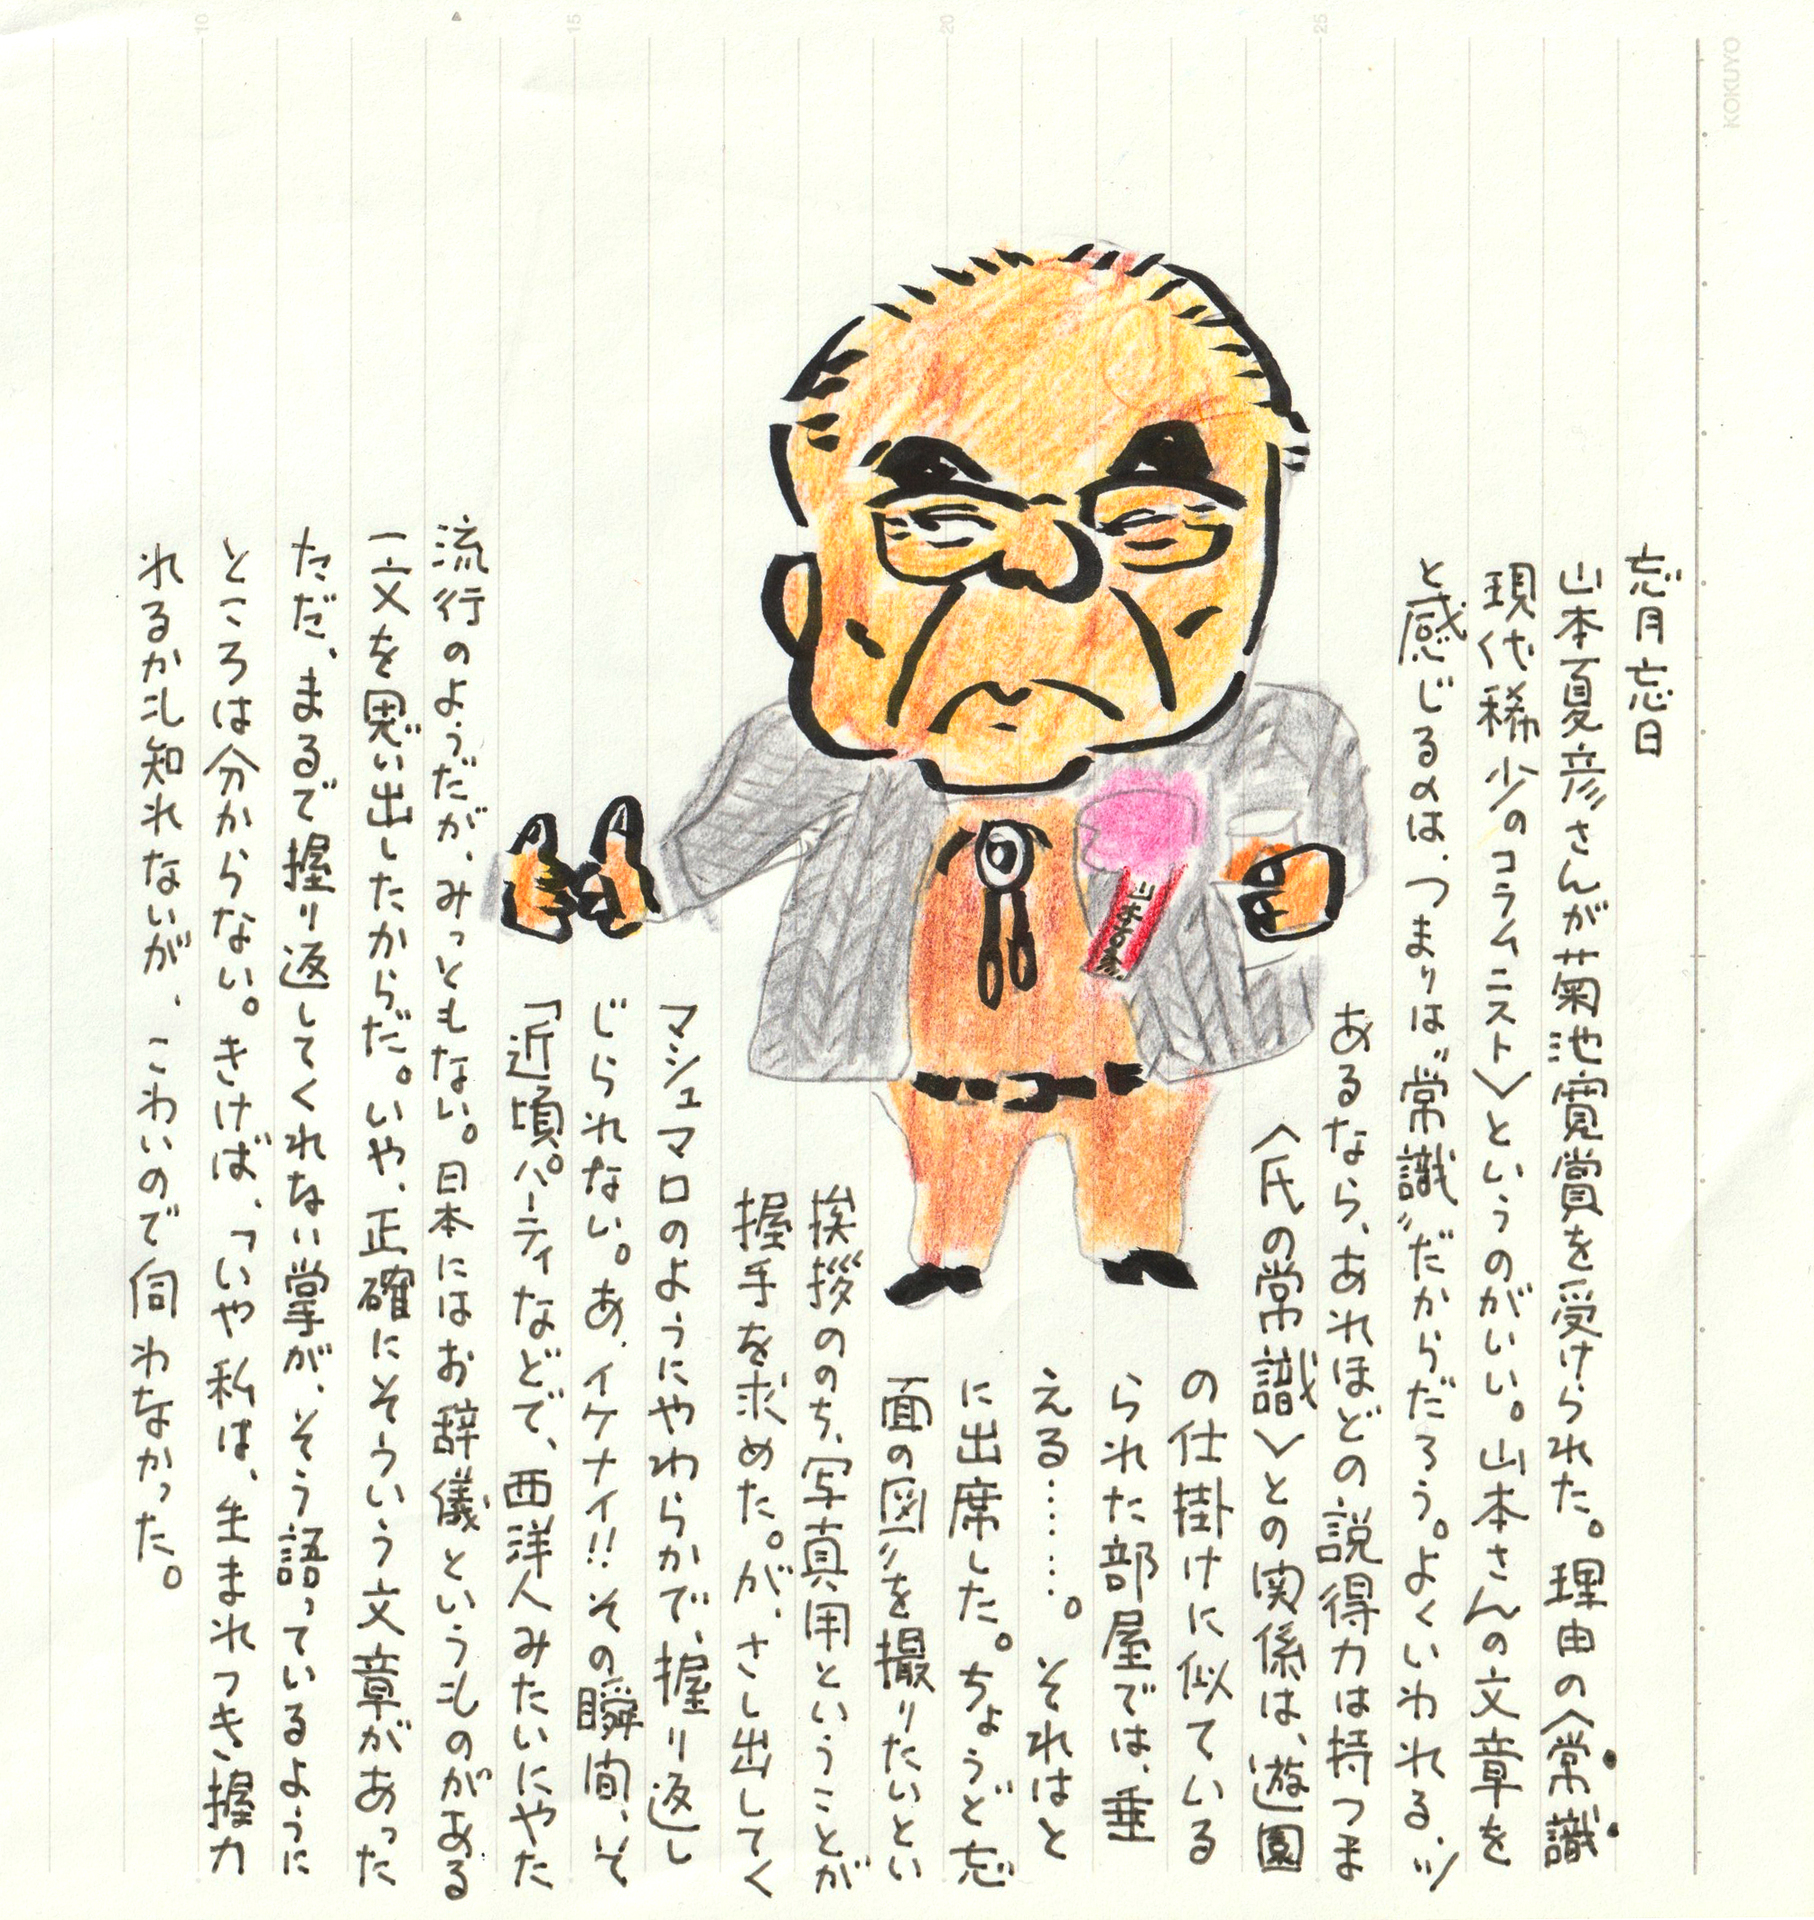 忘月忘日
山本夏彦さんが菊池寛賞を受けられた。理由の〈常識
現代稀少のコラムニスト〉というのがいい。山本さんの文章を
と感じるのは、つまりは〝常識〟だからだろう。よくいわれる、ツ
あるなら、あれほどの説得力は持つま
〈氏の常識〉との関係は、遊園
の仕掛けに似ている
られた部屋では、垂
える………。それはと
に出席した。ちょうど忘
面の図〟を撮りたいとい
挨拶ののち、写真用ということが
握手を求めた。が、さし出してく
マシュマロのようにやわらかで、握り返し
じられない。あ、イケナイ!!その瞬間、そ
「近頃パーティなどで、西洋人みたいにやた
流行のようだが、みっともない。日本にはお辞儀というものがある
一文を思い出したからだ。いや、正確にそういう文章があった
ただ、まるで握り返してくれない掌が、そう語っているように
ところは分からない。きけば、「いや私は、生まれつき握力
れるかも知れないが、こわいので伺わなかった。
KOKUYO
10
15
20
25